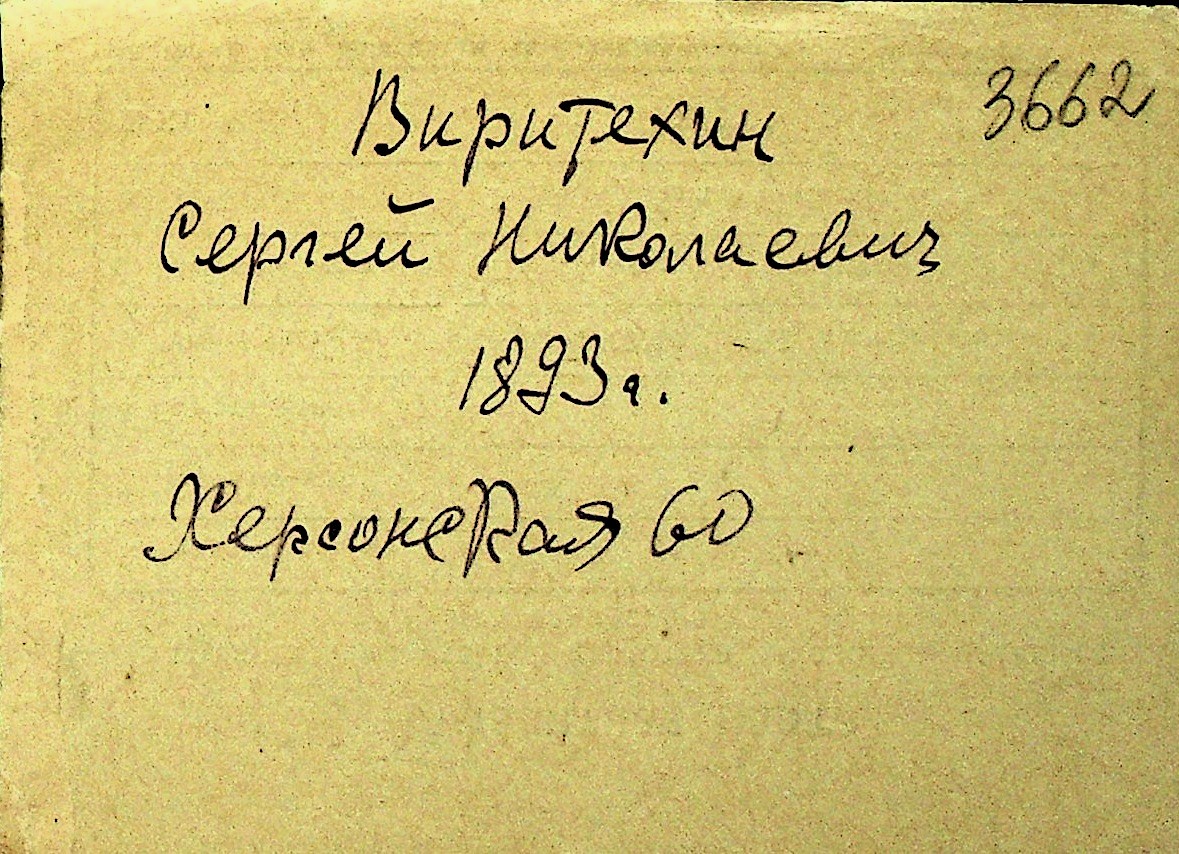 3662
Виритехин
Сергей Николаевич
1893 г.
Херсонская 60